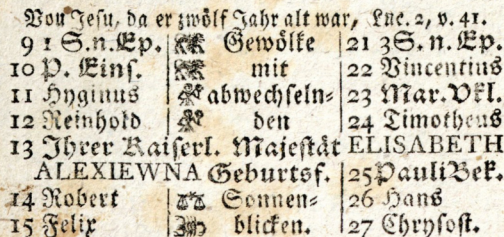 Von Jesu, da er zwölf Jahr alt war, Luc. 2, v. 41.
9 1 S.n.Ep. Gewölke 21 3 S. n. Ep.
10 P. Eins. mit 22 Vincentius
11 Hyginus abwechseln= 23 Mar. Vkl.
12 Reinhold den 24 Timotheus
13 Ihrer Kaiserl. Majestät ELISABETH
ALEXIEWNA Geburtsf. 25 Pauli Bek.
14 Robert Sonnen= 26 Hans
15 Felix blicken. 27 Chrysost.